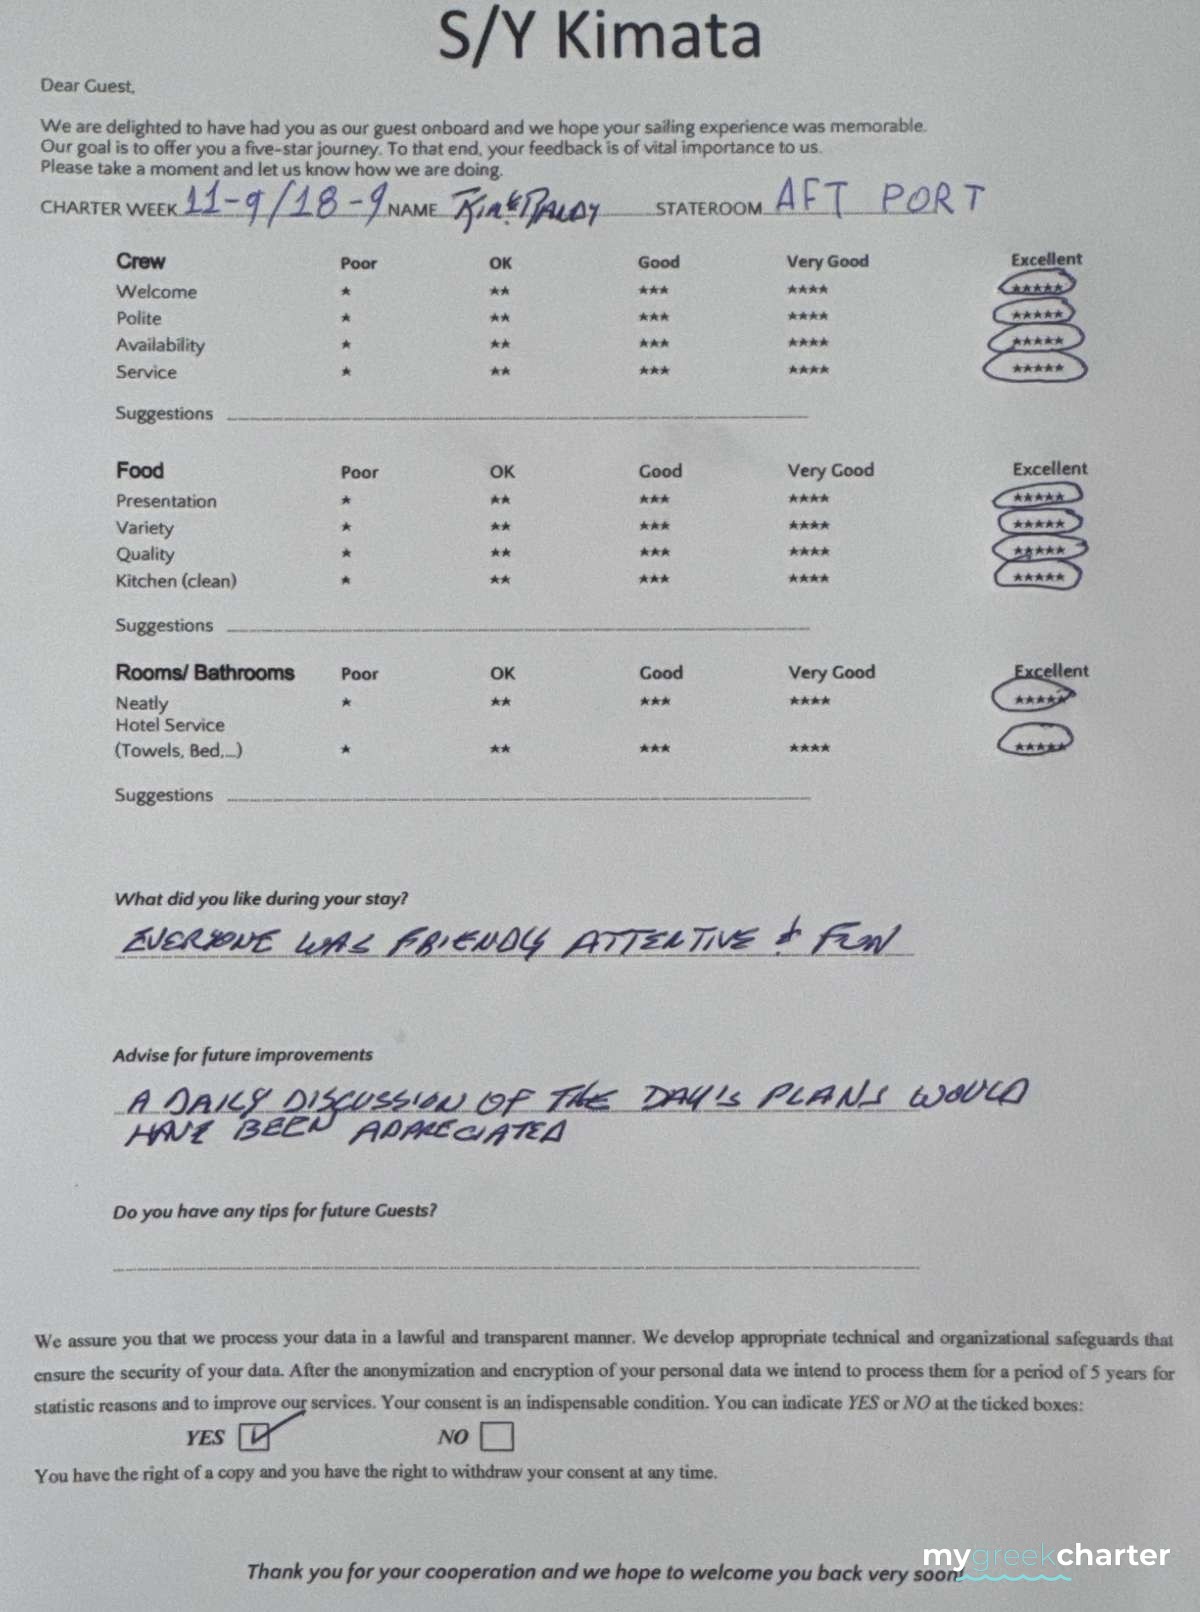 S/Y Kimata
Dear Guest,
We are delighted to have had you as our guest onboard and we hope your sailing experience was memorable.
Our goal is to offer you a five-star journey. To that end, your feedback is of vital importance to us.
Please take a moment and let us know how we are doing.
CHARTER WEEK 11-9/18-9 NAME KIM & RANDY STATEROOM AFT PORT
Crew Poor OK Good Very Good Excellent
Welcome ★ ★★ ★★★ ★★★★ ★★★★★
Polite ★ ★★ ★★★ ★★★★ ★★★★★
Availability ★ ★★ ★★★ ★★★★ ★★★★★
Service ★ ★★ ★★★ ★★★★ ★★★★★
Suggestions
Food Poor OK Good Very Good Excellent
Presentation ★ ★★ ★★★ ★★★★ ★★★★★
Variety ★ ★★ ★★★ ★★★★ ★★★★★
Quality ★ ★★ ★★★ ★★★★ ★★★★★
Kitchen (clean) ★ ★★ ★★★ ★★★★ ★★★★★
Suggestions
Rooms/ Bathrooms Poor OK Good Very Good Excellent
Neatly ★ ★★ ★★★ ★★★★ ★★★★★
Hotel Service
(Towels, Bed,...) ★ ★★ ★★★ ★★★★ ★★★★★
Suggestions
What did you like during your stay?
EVERYONE WAS FRIENDLY ATTENTIVE & FUN
Advise for future improvements
A DAILY DISCUSSION OF THE DAY'S PLANS WOULD
HAVE BEEN APPRECIATED
Do you have any tips for future Guests?
We assure you that we process your data in a lawful and transparent manner. We develop appropriate technical and organizational safeguards that
ensure the security of your data. After the anonymization and encryption of your personal data we intend to process them for a period of 5 years for
statistic reasons and to improve our services. Your consent is an indispensable condition. You can indicate YES or NO at the ticked boxes:
YES NO
You have the right of a copy and you have the right to withdraw your consent at any time.
mygreekcharter
Thank you for your cooperation and we hope to welcome you back very soon!